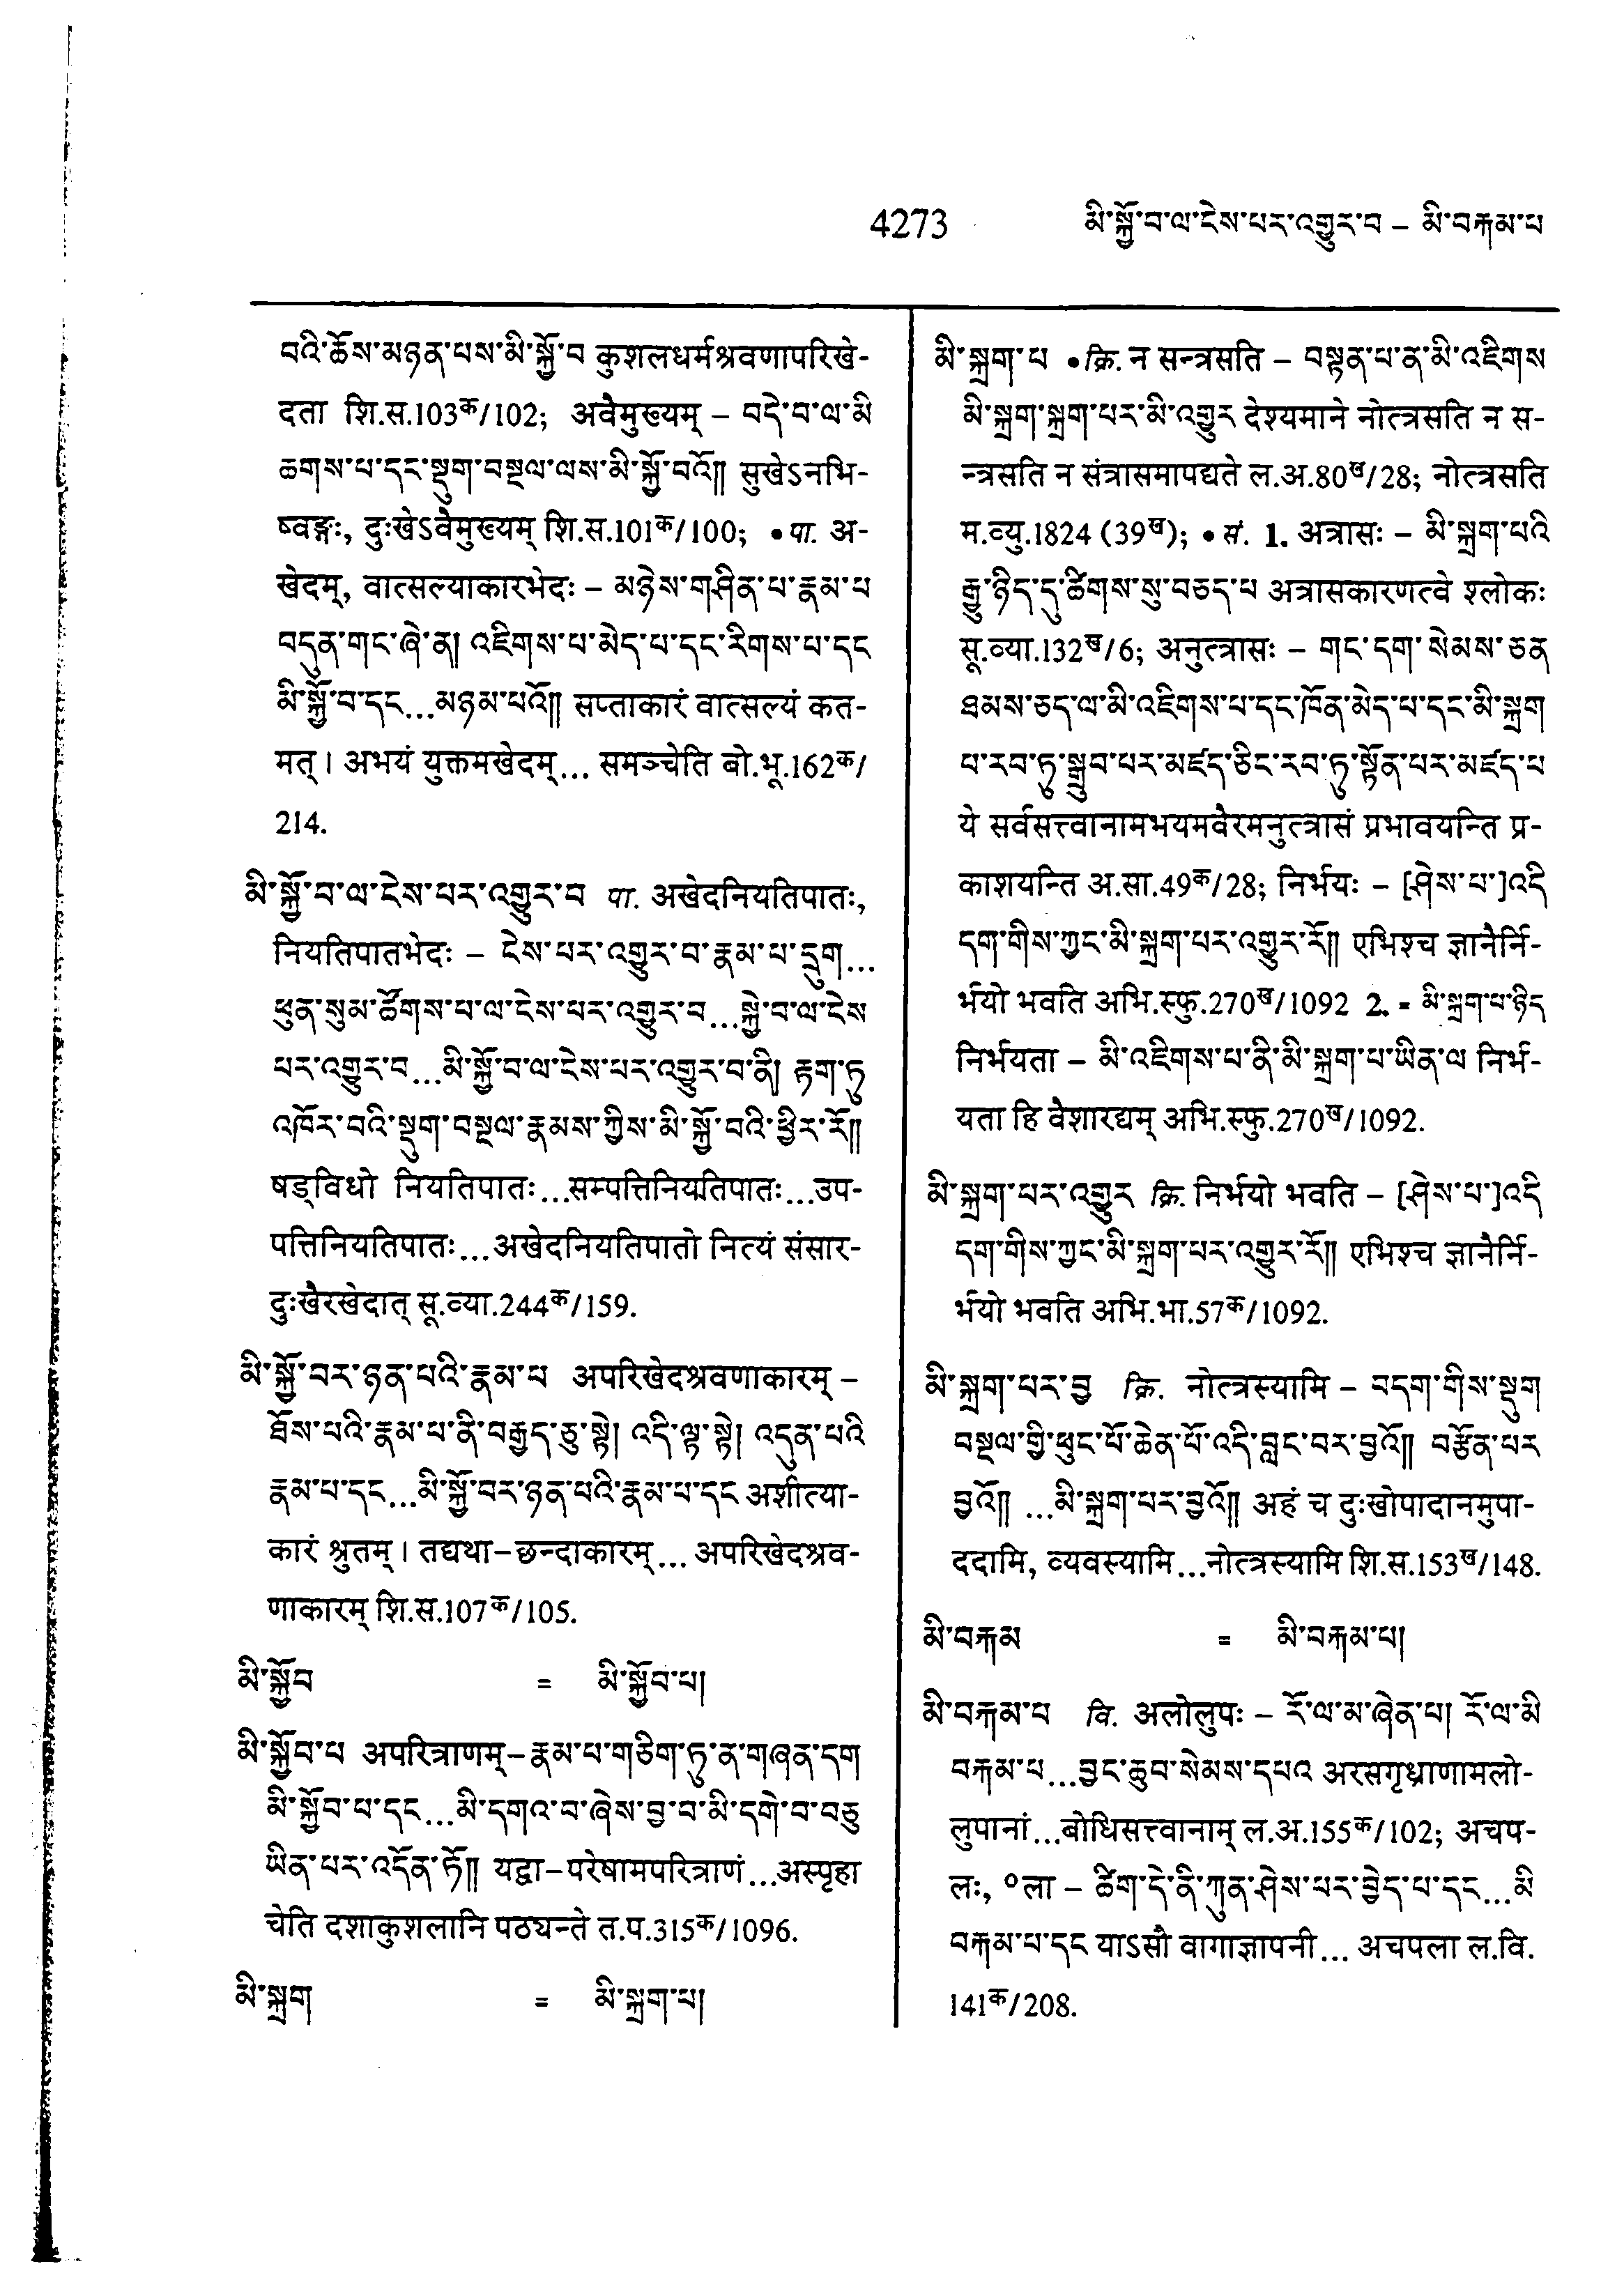 4273 མི་སྐྱོ་བ་ལ་ངེས་པར་འགྱུར་བ – མི་བརྐམ་པ
བའི་ཆོས་མཉན་པས་མི་སྐྱོ་བ कुशलधर्मश्रवणापरिखे-
दता शि.स.103क/102; अवैमुख्यम् – བདེ་བ་ལ་མི
ཆགས་པ་དང་སྡུག་བསྔལ་ལས་མི་སྐྱོ་བའོ༎ सुखेऽनभि-
ष्वङ्गः, दुःखेऽवैमुख्यम् शि.स.101क/100; • पा. अ-
खेदम्, वात्सल्याकारभेदः – མཉེས་གཤིན་པ་རྣམ་པ
བདུན་གང་ཞེ་ན། འཇིགས་པ་མེད་པ་དང་རིགས་པ་དང
མི་སྐྱོ་བ་དང...མཉམ་པའོ༎ सप्ताकारं वात्सल्यं कत-
मत्। अभयं युक्तमखेदम्... समञ्चेति बो.भू.162क/
214.
མི་སྐྱོ་བ་ལ་ངེས་པར་འགྱུར་བ पा. अखेदनियतिपातः,
नियतिपातभेदः – ངེས་པར་འགྱུར་བ་རྣམ་པ་དྲུག...
ཕུན་སུམ་ཚོགས་པ་ལ་ངེས་པར་འགྱུར་བ...སྐྱེ་བ་ལ་ངེས
པར་འགྱུར་བ...མི་སྐྱོ་བ་ལ་ངེས་པར་འགྱུར་བ་ནི། རྟག་ཏུ
འཁོར་བའི་སྡུག་བསྔལ་རྣམས་ཀྱིས་མི་སྐྱོ་བའི་ཕྱིར་རོ༎
षड्विधो नियतिपातः...सम्पत्तिनियतिपातः...उप-
पत्तिनियतिपातः...अखेदनियतिपातो नित्यं संसार-
दुःखैरखेदात् सू.व्या.244क/159.
མི་སྐྱོ་བར་ཉན་པའི་རྣམ་པ अपरिखेदश्रवणाकारम् –
ཐོས་པའི་རྣམ་པ་ནི་བརྒྱད་ཅུ་སྟེ། འདི་ལྟ་སྟེ། འདུན་པའི
རྣམ་པ་དང...མི་སྐྱོ་བར་ཉན་པའི་རྣམ་པ་དང अशीत्या-
कारं श्रुतम्। तद्यथा–छन्दाकारम्... अपरिखेदश्रव-
णाकारम् शि.स.107क/105.
མི་སྐྱོབ = མི་སྐྱོབ་པ།
མི་སྐྱོབ་པ अपरित्राणम्–རྣམ་པ་གཅིག་ཏུ་ན་གཞན་དག
མི་སྐྱོབ་པ་དང...མི་དགའ་བ་ཞེས་བྱ་བ་མི་དགེ་བ་བཅུ
ཡིན་པར་འདོན་ཏོ༎ यद्वा–परेषामपरित्राणं...अस्पृहा
चेति दशाकुशलानि पठ्यन्ते त.प.315क/1096.
མི་སྐྲག = མི་སྐྲག་པ།
མི་སྐྲག་པ • क्रि. न सन्त्रसति – བསྟན་པ་ན་མི་འཇིགས
མི་སྐྲག་སྐྲག་པར་མི་འགྱུར देश्यमाने नोत्त्रसति न स-
न्त्रसति न संत्रासमापद्यते ल.अ.80ख/28; नोत्त्रसति
म.व्यु.1824 (39ख); • सं. 1. अत्रासः – མི་སྐྲག་པའི
རྒྱུ་ཉིད་དུ་ཚིགས་སུ་བཅད་པ अत्रासकारणत्वे श्लोकः
सू.व्या.132ख/6; अनुत्त्रासः – གང་དག་སེམས་ཅན
ཐམས་ཅད་ལ་མི་འཇིགས་པ་དང་ཁོན་མེད་པ་དང་མི་སྐྲག
པ་རབ་ཏུ་སྒྲུབ་པར་མཛད་ཅིང་རབ་ཏུ་སྟོན་པར་མཛད་པ
ये सर्वसत्त्वानामभयमवैरमनुत्त्रासं प्रभावयन्ति प्र-
काशयन्ति अ.सा.49क/28; निर्भयः – [ཤེས་པ་]འདི
དག་གིས་ཀྱང་མི་སྐྲག་པར་འགྱུར་རོ༎ एभिश्च ज्ञानैर्नि-
र्भयो भवति अभि.स्फु.270ख/1092 2. = མི་སྐྲག་པ་ཉིད
निर्भयता – མི་འཇིགས་པ་ནི་མི་སྐྲག་པ་ཡིན་ལ निर्भ-
यता हि वैशारद्यम् अभि.स्फु.270ख/1092.
མི་སྐྲག་པར་འགྱུར क्रि. निर्भयो भवति – [ཤེས་པ་]འདི
དག་གིས་ཀྱང་མི་སྐྲག་པར་འགྱུར་རོ༎ एभिश्च ज्ञानैर्नि-
र्भयो भवति अभि.भा.57क/1092.
མི་སྐྲག་པར་བྱ क्रि. नोत्त्रस्यामि – བདག་གིས་སྡུག
བསྔལ་གྱི་ཕུང་པོ་ཆེན་པོ་འདི་བླང་བར་བྱའོ༎ བརྩོན་པར
བྱའོ༎ ...མི་སྐྲག་པར་བྱའོ༎ अहं च दुःखोपादानमुपा-
ददामि, व्यवस्यामि...नोत्त्रस्यामि शि.स.153ख/148.
མི་བརྐམ = མི་བརྐམ་པ།
མི་བརྐམ་པ वि. अलोलुपः – རོ་ལ་མ་ཞེན་པ། རོ་ལ་མི
བརྐམ་པ...བྱང་ཆུབ་སེམས་དཔའ अरसगृध्राणामलो-
लुपानां...बोधिसत्त्वानाम् ल.अ.155क/102; अचप-
लः, ०ला – ཚིག་དེ་ནི་ཀུན་ཤེས་པར་བྱེད་པ་དང...མི
བརྐམ་པ་དང याऽसौ वागाज्ञापनी... अचपला ल.वि.
141क/208.